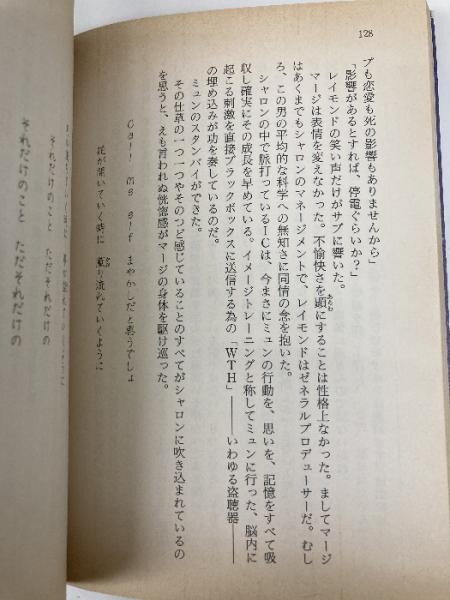 128
プも恋愛も死の影響もありませんから」
「影響があるとすれば、停電ぐらいか？」
レイモンドの笑い声だけがサブに響いた。
マージは表情を変えなかった。不愉快さを顕にすることは性格上なかった。ましてマージ
はあくまでもシャロンのマネージメントで、レイモンドはゼネラルプロデューサーだ。むし
ろ、この男の平均的な科学への無知さに同情の念を抱いた。
シャロンの中で脈打っているＩＣは、今まさにミュンの行動を、思いを、記憶をすべて吸
収し確実にその成長を早めている。イメージトレーニングと称してミュンに行った、脳内に
起こる刺激を直接ブラックボックスに送信する為の「ＷＴＨ」――いわゆる盗聴器――
の埋め込みが功を奏しているのだ。
ミュンのスタンバイができた。
その仕草の一つ一つやそのつど感じていることのすべてがシャロンに吹き込まれているの
を思うと、えも言われぬ恍惚感がマージの身体を駆け巡った。
Ｃａｌｌ ｍｅ ｇｉｒｌ まやかしだと思うでしょ
花が開いていく時に 薫り流れていくように
それだけのこと ただそれだけの
それだけのこと ただそれだけの